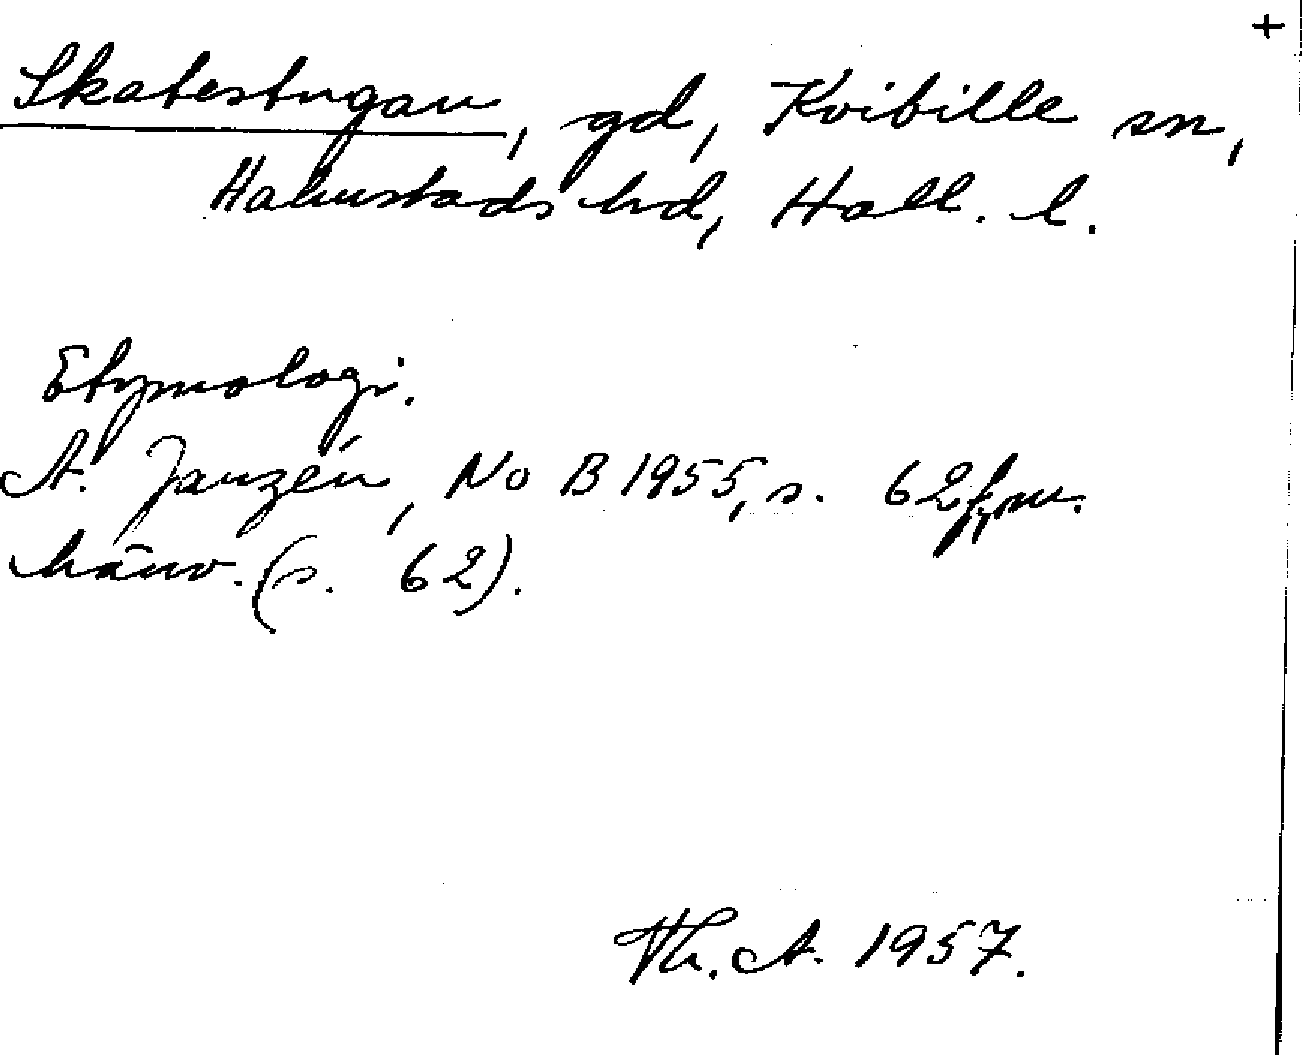 +
Skatestugan, gd, Kvibille sn,
Halmstads hd, Hall. l.
Etymologi.
A. Janzén, NoB 1955, s. 62f, m.
hänv. (s. 62).
Th. A. 1957.